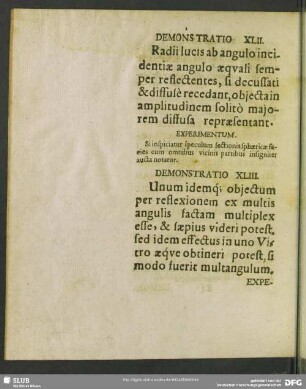 DEMONSTRATIO XLII.
Radii lucis ab angulo inci-
dentiæ angulo æqvali sem-
per reflectentes, si decussati
& diffusè recedant, objecta in
amplitudinem solitò majo-
rem diffusa repræsentant.
EXPERIMENTUM.
Si inspiciatur speculum sectionis sphæricæ fa-
cies cum omnibus vicinis partibus insigniter
aucta notatur.
DEMONSTRATIO XLIII.
Unum idemq; objectum
per reflexionem ex multis
angulis factam multiplex
esse, & sæpius videri potest,
sed idem effectus in uno Vi-
tro æqve obtineri potest, si
modo fuerit multangulum.
EXPE-
SLUB
DFG